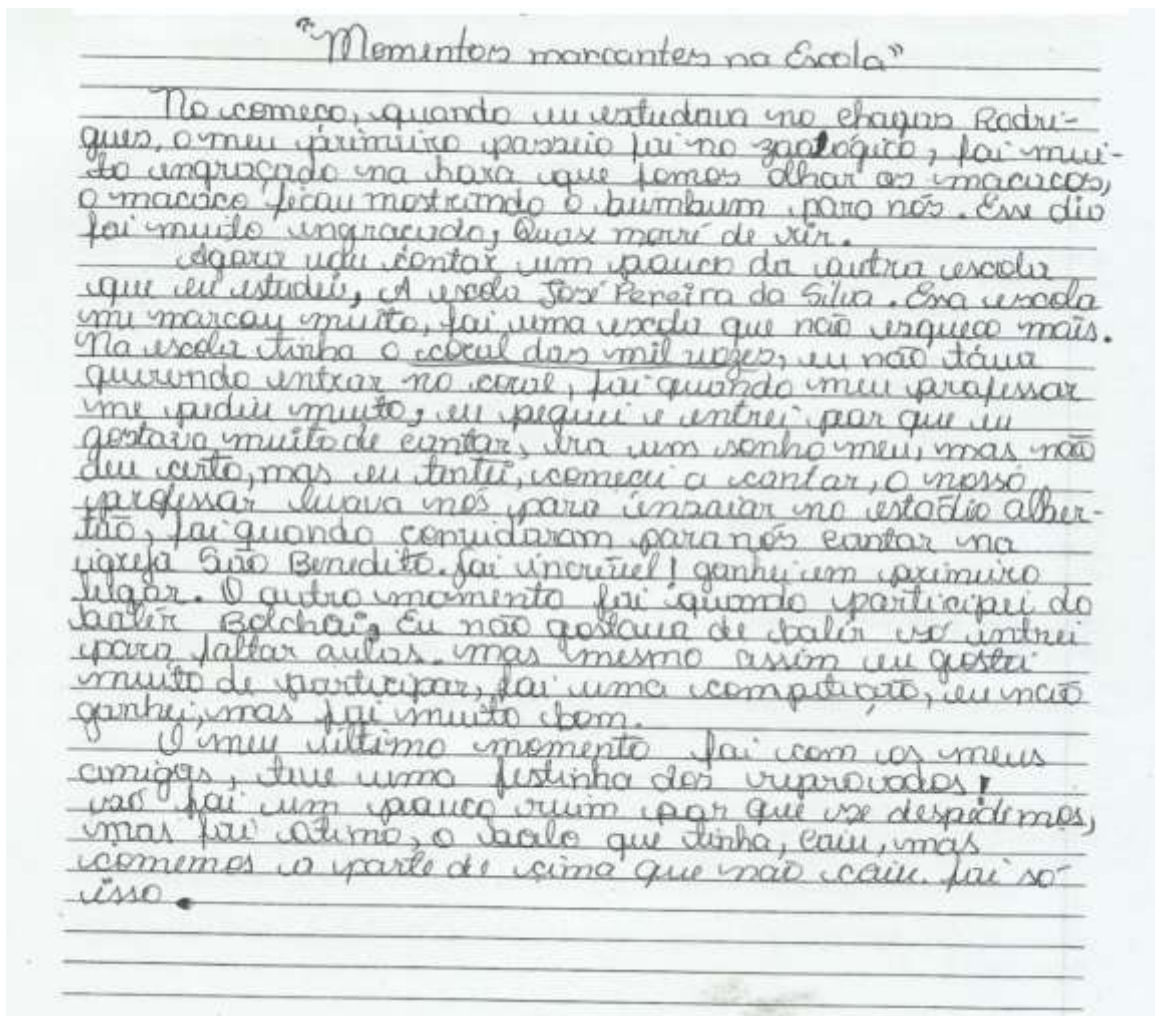 "Momentos marcantes na Escola"
No começo, quando eu estudava no chagas Rodri-
gues, o meu primeiro passeio foi no zoológico, foi mui-
to engraçado na hora que fomos olhar os macacos,
o macaco ficou mostrando o bumbum para nós. Esse dia
foi muito engraçado, Quase morri de rir.
Agora vou contar um pouco da outra escola
que eu estudei, A escola José Pereira da Silva. Essa escola
me marcou muito, foi uma escola que não esqueço mais.
Na escola tinha o coral das mil vozes, eu não táva
querendo entrar no coral, foi quando meu professor
me pediu muito, eu peguei e entrei por que eu
gostava muito de cantar, era um sonho meu, mas não
deu certo, mas eu tentei, comecei a cantar, o nosso
professor levava nós para insaiar no estadio alber-
tão, foi quando convidaram para nós cantar na
igreja São Benedito. foi incrível! ganhei em primeiro
lugar. O outro momento foi quando participei do
balér Bolchoi, Eu não gostava de balér só entrei
para faltar aulas. mas mesmo assim eu gostei
muito de participar, foi uma competição, eu não
ganhei, mas foi muito bom.
O meu último momento foi com os meus
amigos, teve uma festinha dos reprovados!
só foi um pouco ruim por que se despedimos,
mas foi otimo, o bolo que tinha, caiu, mas
comemos a parte de cima que não caiu. foi só
isso.